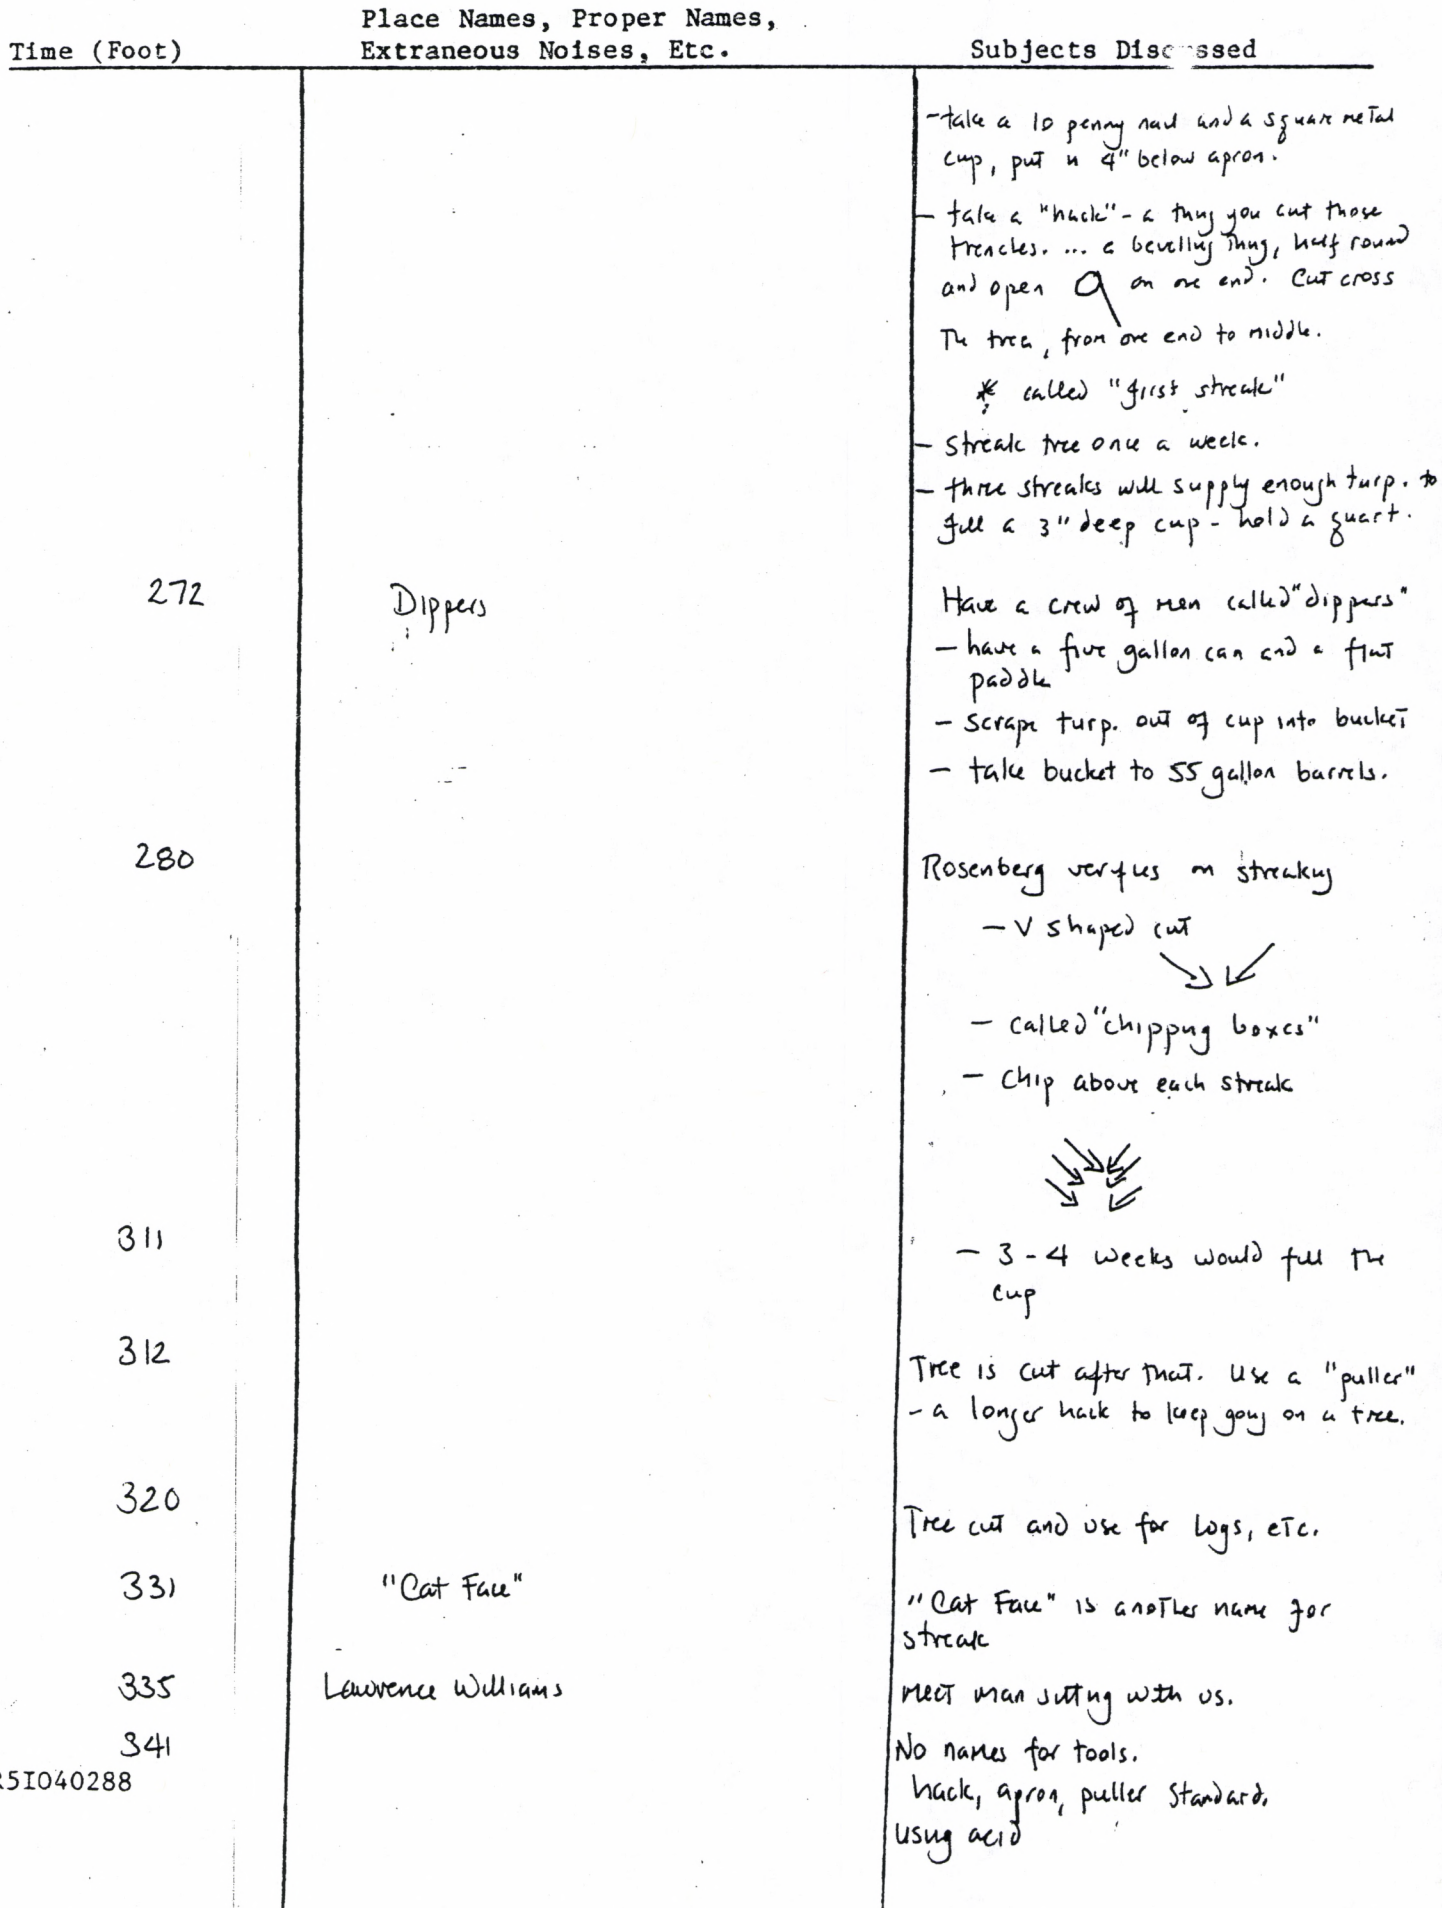 Place Names, Proper Names,
Time (Foot) Extraneous Noises, Etc. Subjects Discussed
- take a 10 penny nail and a square metal
cup, put in 4" below apron.
- take a "hack" - a thing you cut those
trenches. ... a bevelling thing, half round
and open on one end. Cut cross
The tree, from one end to middle.
* called "first streak"
- Streak tree once a week.
- three streaks will supply enough turp. to
fill a 3" deep cup - hold a quart.
272 Dippers Have a crew of men called "dippers"
- have a five gallon can and a flat
paddle
- scrape turp. out of cup into bucket
- take bucket to 55 gallon barrels.
280 Rosenberg verifies on streaking
- V shaped cut
- called "chipping boxes"
- Chip above each streak
311 - 3-4 weeks would fill the
cup
312 Tree is cut after that. Use a "puller"
- a longer hack to keep going on a tree.
320 Tree cut and use for logs, etc.
331 "Cat Face" "Cat Face" is another name for
streak
335 Lawrence Williams Meet man sitting with us.
341 No names for tools.
R5I040288 hack, apron, puller standard.
Using acid